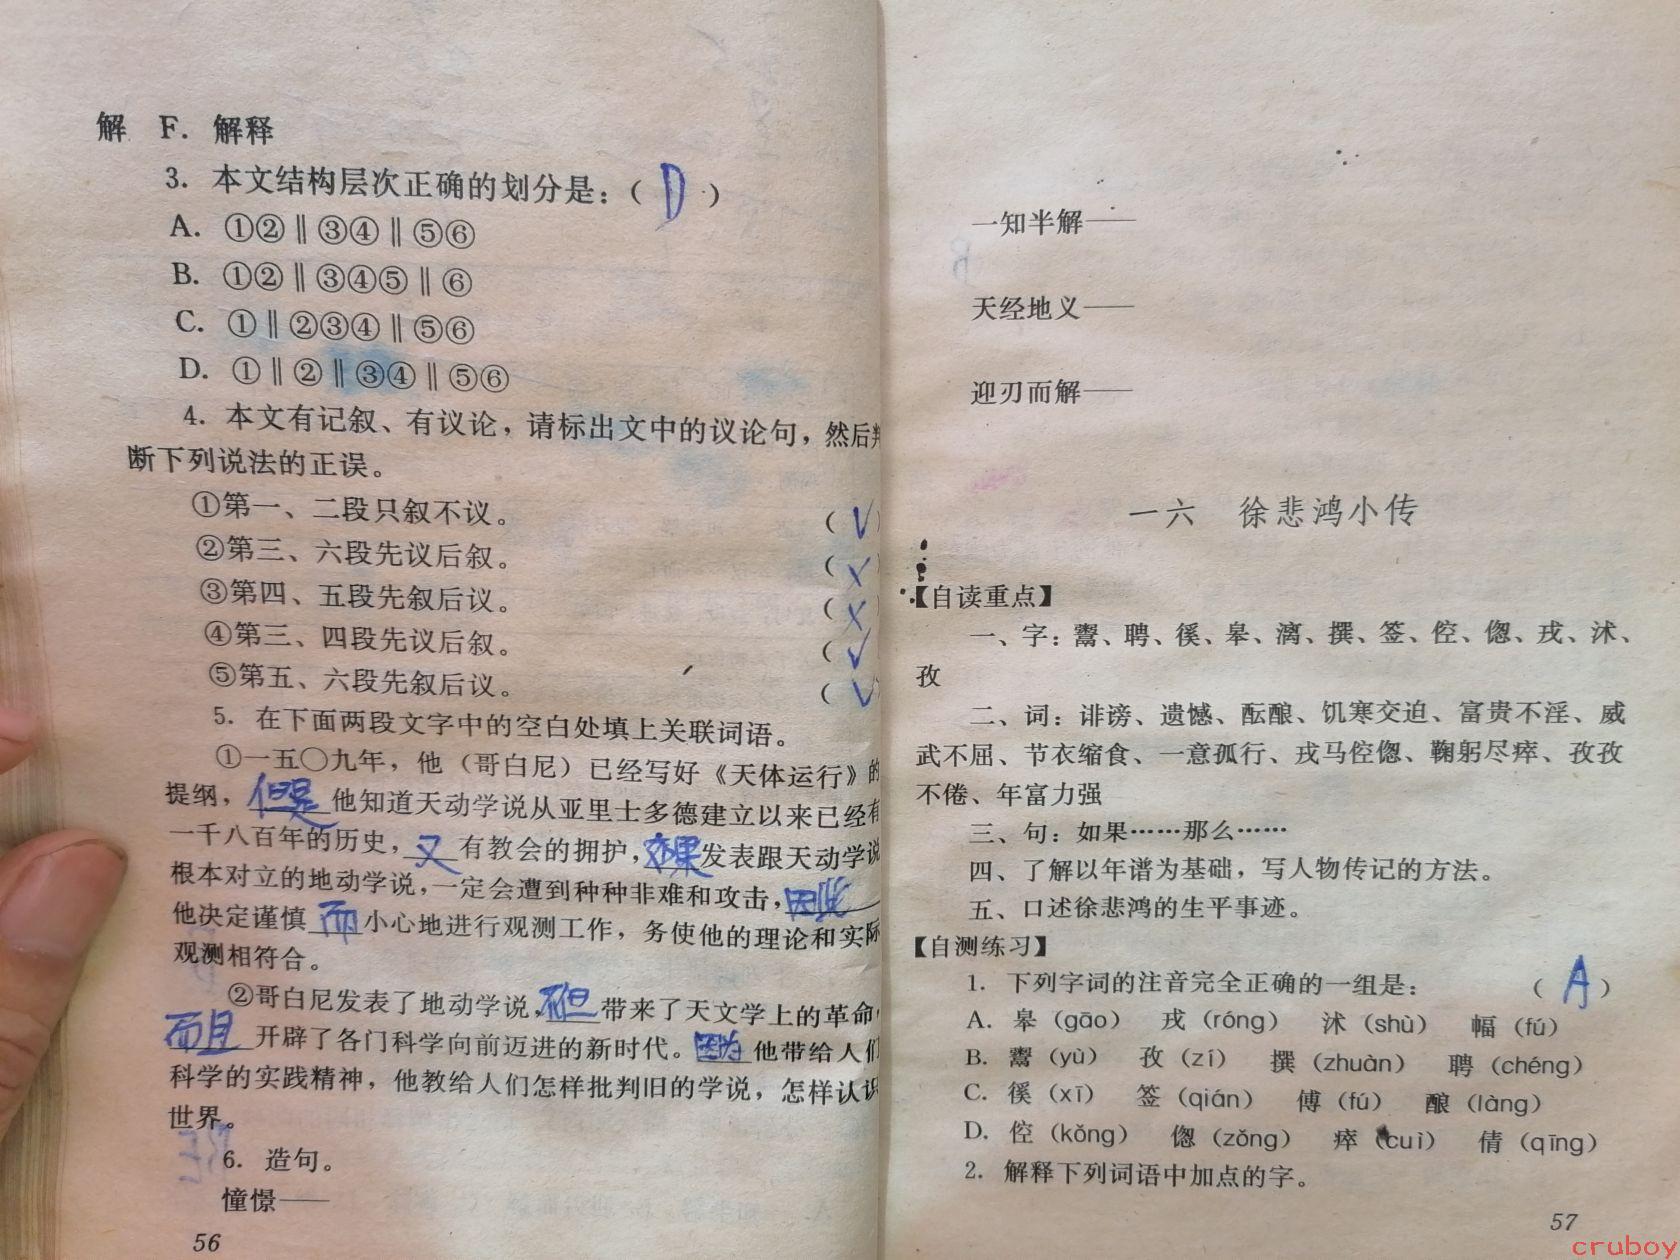 解 F. 解释
3. 本文结构层次正确的划分是：( D )
A. ①②‖③④‖⑤⑥
B. ①②‖③④⑤‖⑥
C. ①‖②③④‖⑤⑥
D. ①‖②‖③④‖⑤⑥
4. 本文有记叙、有议论，请标出文中的议论句，然后判
断下列说法的正误。
①第一、二段只叙不议。 ( √ )
②第三、六段先议后叙。 ( × )
③第四、五段先叙后议。 ( × )
④第三、四段先议后叙。 ( √ )
⑤第五、六段先叙后议。 ( √ )
5. 在下面两段文字中的空白处填上关联词语。
①一五〇九年，他（哥白尼）已经写好《天体运行》的
提纲，但是他知道天动学说从亚里士多德建立以来已经有
一千八百年的历史，又有教会的拥护，如果发表跟天动学说
根本对立的地动学说，一定会遭到种种非难和攻击，因此
他决定谨慎而小心地进行观测工作，务使他的理论和实际
观测相符合。
②哥白尼发表了地动学说，不但带来了天文学上的革命，
而且开辟了各门科学向前迈进的新时代。因为他带给人们
科学的实践精神，他教给人们怎样批判旧的学说，怎样认识
世界。
6. 造句。
憧憬——
56
一知半解——
天经地义——
迎刃而解——
一六 徐悲鸿小传
【自读重点】
一、字：鬻、聘、徯、皋、漓、撰、签、倥、偬、戎、沭、
孜
二、词：诽谤、遗憾、酝酿、饥寒交迫、富贵不淫、威
武不屈、节衣缩食、一意孤行、戎马倥偬、鞠躬尽瘁、孜孜
不倦、年富力强
三、句：如果……那么……
四、了解以年谱为基础，写人物传记的方法。
五、口述徐悲鸿的生平事迹。
【自测练习】
1. 下列字词的注音完全正确的一组是： ( A )
A. 皋（gāo） 戎（róng） 沭（shù） 幅（fú）
B. 鬻（yù） 孜（zí） 撰（zhuàn） 聘（chéng）
C. 徯（xī） 签（qián） 傅（fú） 酿（làng）
D. 倥（kǒng） 偬（zǒng） 瘁（cuì） 倩（qīng）
2. 解释下列词语中加点的字。
57
cruboy